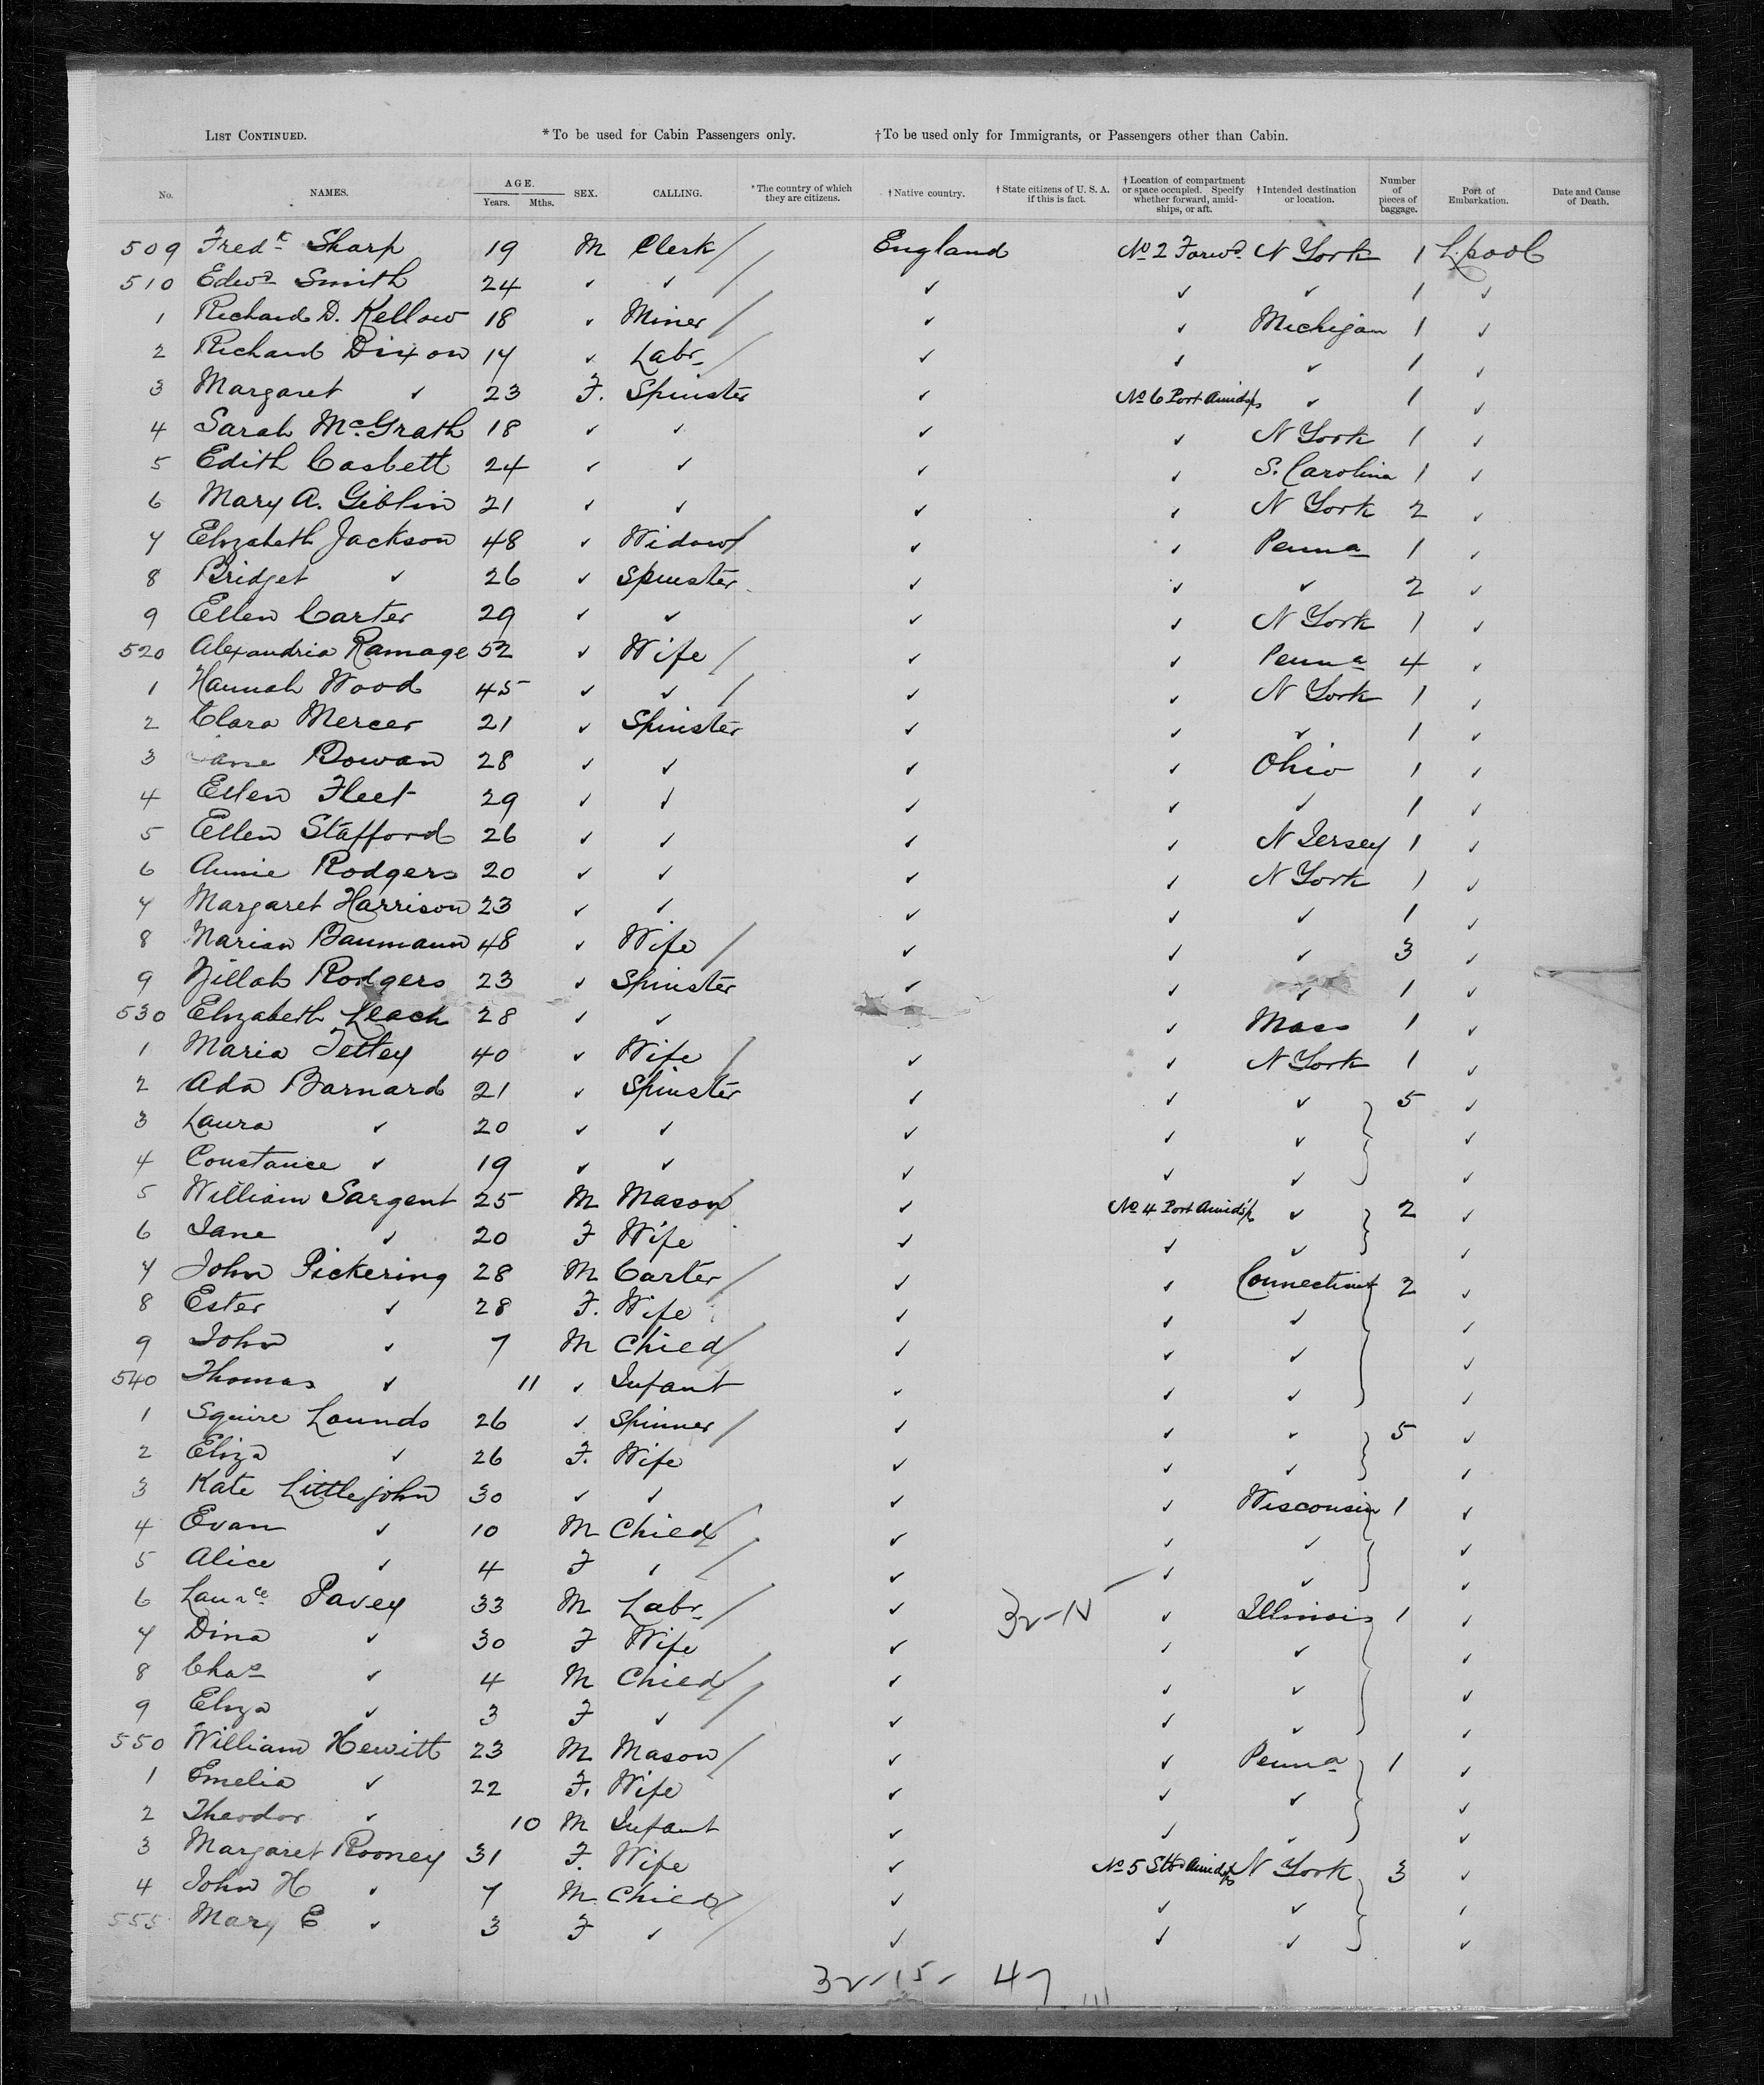 LIST CONTINUED. *To be used for Cabin Passengers only. †To be used only for Immigrants, or Passengers other than Cabin.
No. NAMES. AGE. Years. Mths. SEX. CALLING. *The country of which they are citizens. †Native country. †State citizens of U. S. A. if this is fact. †Location of compartment or space occupied. Specify whether forward, amidships, or aft. †Intended destination or location. Number of pieces of baggage. Port of Embarkation. Date and Cause of Death.
509 Fredk Sharp 19 M Clerk / England No 2 Forwd. N York 1 L.pool
510 Edwd Smith 24 ✓ ✓ / ✓ ✓ ✓ 1 ✓
1 Richard D. Kellow 18 ✓ Miner / ✓ ✓ Michigan 1 ✓
2 Richard Dixon 17 ✓ Labr / ✓ ✓ ✓ 1 ✓
3 Margaret ✓ 23 F. Spinster ✓ No 6 Port Amidsp ✓ 1 ✓
4 Sarah McGrath 18 ✓ ✓ ✓ ✓ N York 1 ✓
5 Edith Casbett 24 ✓ ✓ ✓ ✓ S. Carolina 1 ✓
6 Mary A. Giblin 21 ✓ ✓ ✓ ✓ N York 2 ✓
7 Elizabeth Jackson 48 ✓ Widow / ✓ ✓ Penna 1 ✓
8 Bridget ✓ 26 ✓ Spinster ✓ ✓ ✓ 2 ✓
9 Ellen Carter 29 ✓ ✓ ✓ ✓ N York 1 ✓
520 Alexandria Ramage 52 ✓ Wife / ✓ ✓ Penna 4 ✓
1 Hannah Wood 45 ✓ ✓ / ✓ ✓ N York 1 ✓
2 Clara Mercer 21 ✓ Spinster ✓ ✓ ✓ 1 ✓
3 Jane Bowan 28 ✓ ✓ ✓ ✓ Ohio 1 ✓
4 Ellen Fleet 29 ✓ ✓ ✓ ✓ ✓ 1 ✓
5 Ellen Stafford 26 ✓ ✓ ✓ ✓ N Jersey 1 ✓
6 Annie Rodgers 20 ✓ ✓ ✓ ✓ N York 1 ✓
7 Margaret Harrison 23 ✓ ✓ ✓ ✓ ✓ 1 ✓
8 Marian Baumann 48 ✓ Wife / ✓ ✓ ✓ 3 ✓
9 Zillah Rodgers 23 ✓ Spinster ✓ ✓ ✓ 1 ✓
530 Elizabeth Leach 28 ✓ ✓ ✓ Mass 1 ✓
1 Maria Tetley 40 ✓ Wife / ✓ ✓ N York 1 ✓
2 Ada Barnard 21 ✓ Spinster ✓ ✓ ✓ 5 ✓
3 Laura ✓ 20 ✓ ✓ ✓ ✓ ✓ ✓
4 Constance ✓ 19 ✓ ✓ ✓ ✓ ✓ ✓
5 William Sargent 25 M Mason / ✓ No 4 Port Amidsp ✓ 2 ✓
6 Jane ✓ 20 F Wife ✓ ✓ ✓ ✓
7 John Pickering 28 M Carter / ✓ ✓ Connecticut 2 ✓
8 Ester ✓ 28 F. Wife ✓ ✓ ✓ ✓
9 John ✓ 7 M Child / ✓ ✓ ✓ ✓
540 Thomas ✓ 11 ✓ Infant ✓ ✓ ✓ ✓
1 Squire Lounds 26 ✓ Spinner / ✓ ✓ ✓ 5 ✓
2 Eliza ✓ 26 F. Wife ✓ ✓ ✓ ✓
3 Kate Littlejohn 30 ✓ ✓ ✓ ✓ Wisconsin 1 ✓
4 Evan ✓ 10 M Child / ✓ ✓ ✓ ✓
5 Alice ✓ 4 F ✓ / ✓ ✓ ✓ ✓
6 Laurce Pavey 33 M Labr / ✓ ✓ Illinois 1 ✓
7 Dina ✓ 30 F Wife ✓ ✓ ✓ ✓
8 Chas ✓ 4 M Child / ✓ ✓ ✓ ✓
9 Eliza ✓ 3 F ✓ / ✓ ✓ ✓ ✓
550 William Hewitt 23 M Mason / ✓ ✓ Penna 1 ✓
1 Emelia ✓ 22 F. Wife ✓ ✓ ✓ ✓
2 Theodor ✓ 10 M Infant ✓ ✓ ✓ ✓
3 Margaret Rooney 31 F. Wife ✓ No 5 Stb Amidsp N York 3 ✓
4 John H ✓ 7 M Child / ✓ ✓ ✓ ✓
555 Mary E ✓ 3 F ✓ / ✓ ✓ ✓ ✓
32-15- 47